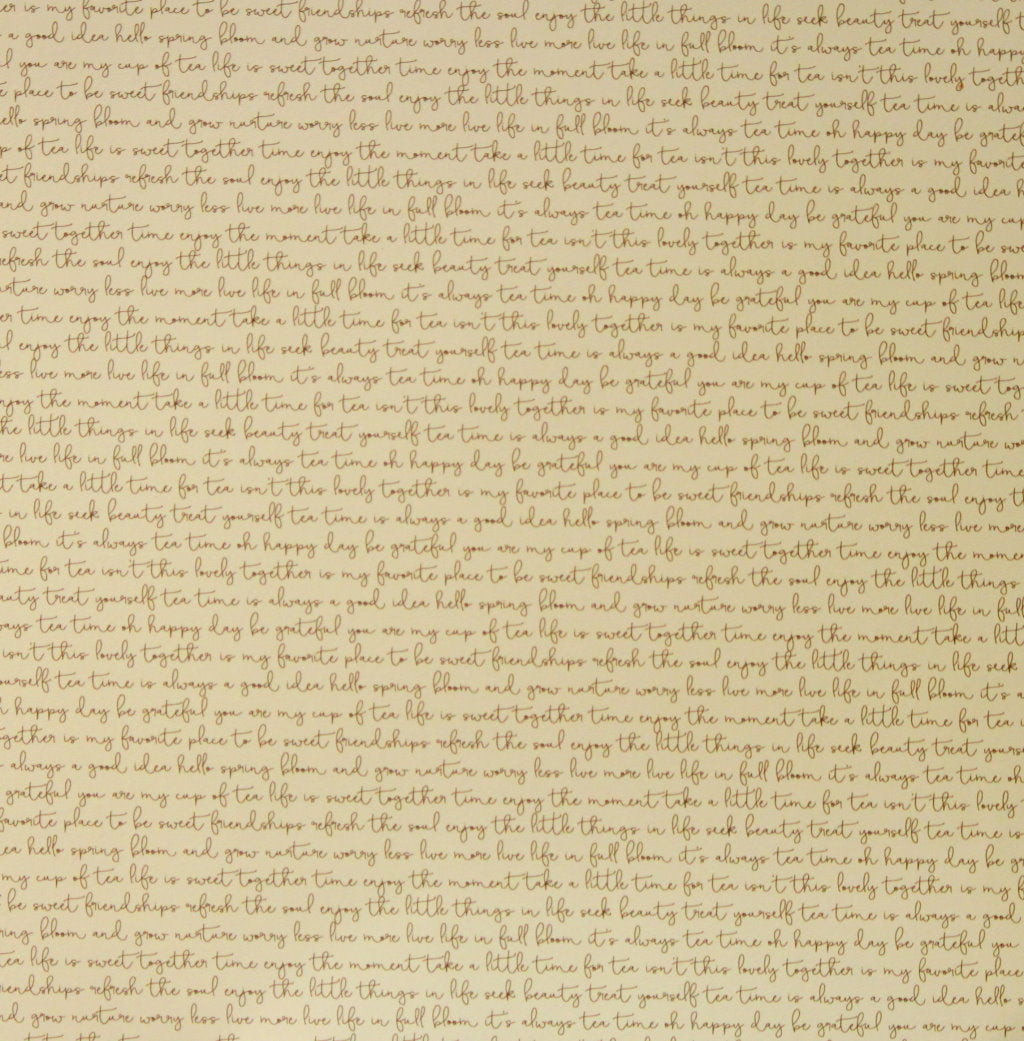 er is my favorite place to be sweet friendships refresh the soul enjoy the little things in life seek beauty treat yourself t
a good idea hello spring bloom and grow nurture worry less live more live life in full bloom it's always tea time oh happy
l you are my cup of tea life is sweet together time enjoy the moment take a little time for tea isn't this lovely togeth
e place to be sweet friendships refresh the soul enjoy the little things in life seek beauty treat yourself tea time is alwa
ello spring bloom and grow nurture worry less live more live life in full bloom it's always tea time oh happy day be gratef
p of tea life is sweet together time enjoy the moment take a little time for tea isn't this lovely together is my favorite
et friendships refresh the soul enjoy the little things in life seek beauty treat yourself tea time is always a good idea h
and grow nurture worry less live more live life in full bloom it's always tea time oh happy day be grateful you are my cup
sweet together time enjoy the moment take a little time for tea isn't this lovely together is my favorite place to be swe
efresh the soul enjoy the little things in life seek beauty treat yourself tea time is always a good idea hello spring bloom
urture worry less live more live life in full bloom it's always tea time oh happy day be grateful you are my cup of tea life
er time enjoy the moment take a little time for tea isn't this lovely together is my favorite place to be sweet friendship
l enjoy the little things in life seek beauty treat yourself tea time is always a good idea hello spring bloom and grow n
ess live more live life in full bloom it's always tea time oh happy day be grateful you are my cup of tea life is sweet tog
enjoy the moment take a little time for tea isn't this lovely together is my favorite place to be sweet friendships refresh
the little things in life seek beauty treat yourself tea time is always a good idea hello spring bloom and grow nurture wo
re live life in full bloom it's always tea time oh happy day be grateful you are my cup of tea life is sweet together time
t take a little time for tea isn't this lovely together is my favorite place to be sweet friendships refresh the soul enjoy th
in life seek beauty treat yourself tea time is always a good idea hello spring bloom and grow nurture worry less live more
bloom it's always tea time oh happy day be grateful you are my cup of tea life is sweet together time enjoy the momen
ime for tea isn't this lovely together is my favorite place to be sweet friendships refresh the soul enjoy the little things
auty treat yourself tea time is always a good idea hello spring bloom and grow nurture worry less live more live life in full
ways tea time oh happy day be grateful you are my cup of tea life is sweet together time enjoy the moment take a litt
isn't this lovely together is my favorite place to be sweet friendships refresh the soul enjoy the little things in life seek
ourself tea time is always a good idea hello spring bloom and grow nurture worry less live more live life in full bloom it's a
h happy day be grateful you are my cup of tea life is sweet together time enjoy the moment take a little time for tea i
ogether is my favorite place to be sweet friendships refresh the soul enjoy the little things in life seek beauty treat yours
always a good idea hello spring bloom and grow nurture worry less live more live life in full bloom it's always tea time oh
grateful you are my cup of tea life is sweet together time enjoy the moment take a little time for tea isn't this lovely
favorite place to be sweet friendships refresh the soul enjoy the little things in life seek beauty treat yourself tea time is
ea hello spring bloom and grow nurture worry less live more live life in full bloom it's always tea time oh happy day be gr
my cup of tea life is sweet together time enjoy the moment take a little time for tea isn't this lovely together is my f
be sweet friendships refresh the soul enjoy the little things in life seek beauty treat yourself tea time is always a good
ring bloom and grow nurture worry less live more live life in full bloom it's always tea time oh happy day be grateful you
tea life is sweet together time enjoy the moment take a little time for tea isn't this lovely together is my favorite place
iendships refresh the soul enjoy the little things in life seek beauty treat yourself tea time is always a good idea hello s
nd grow nurture worry less live more live life in full bloom it's always tea time oh happy day be grateful you are my cup o